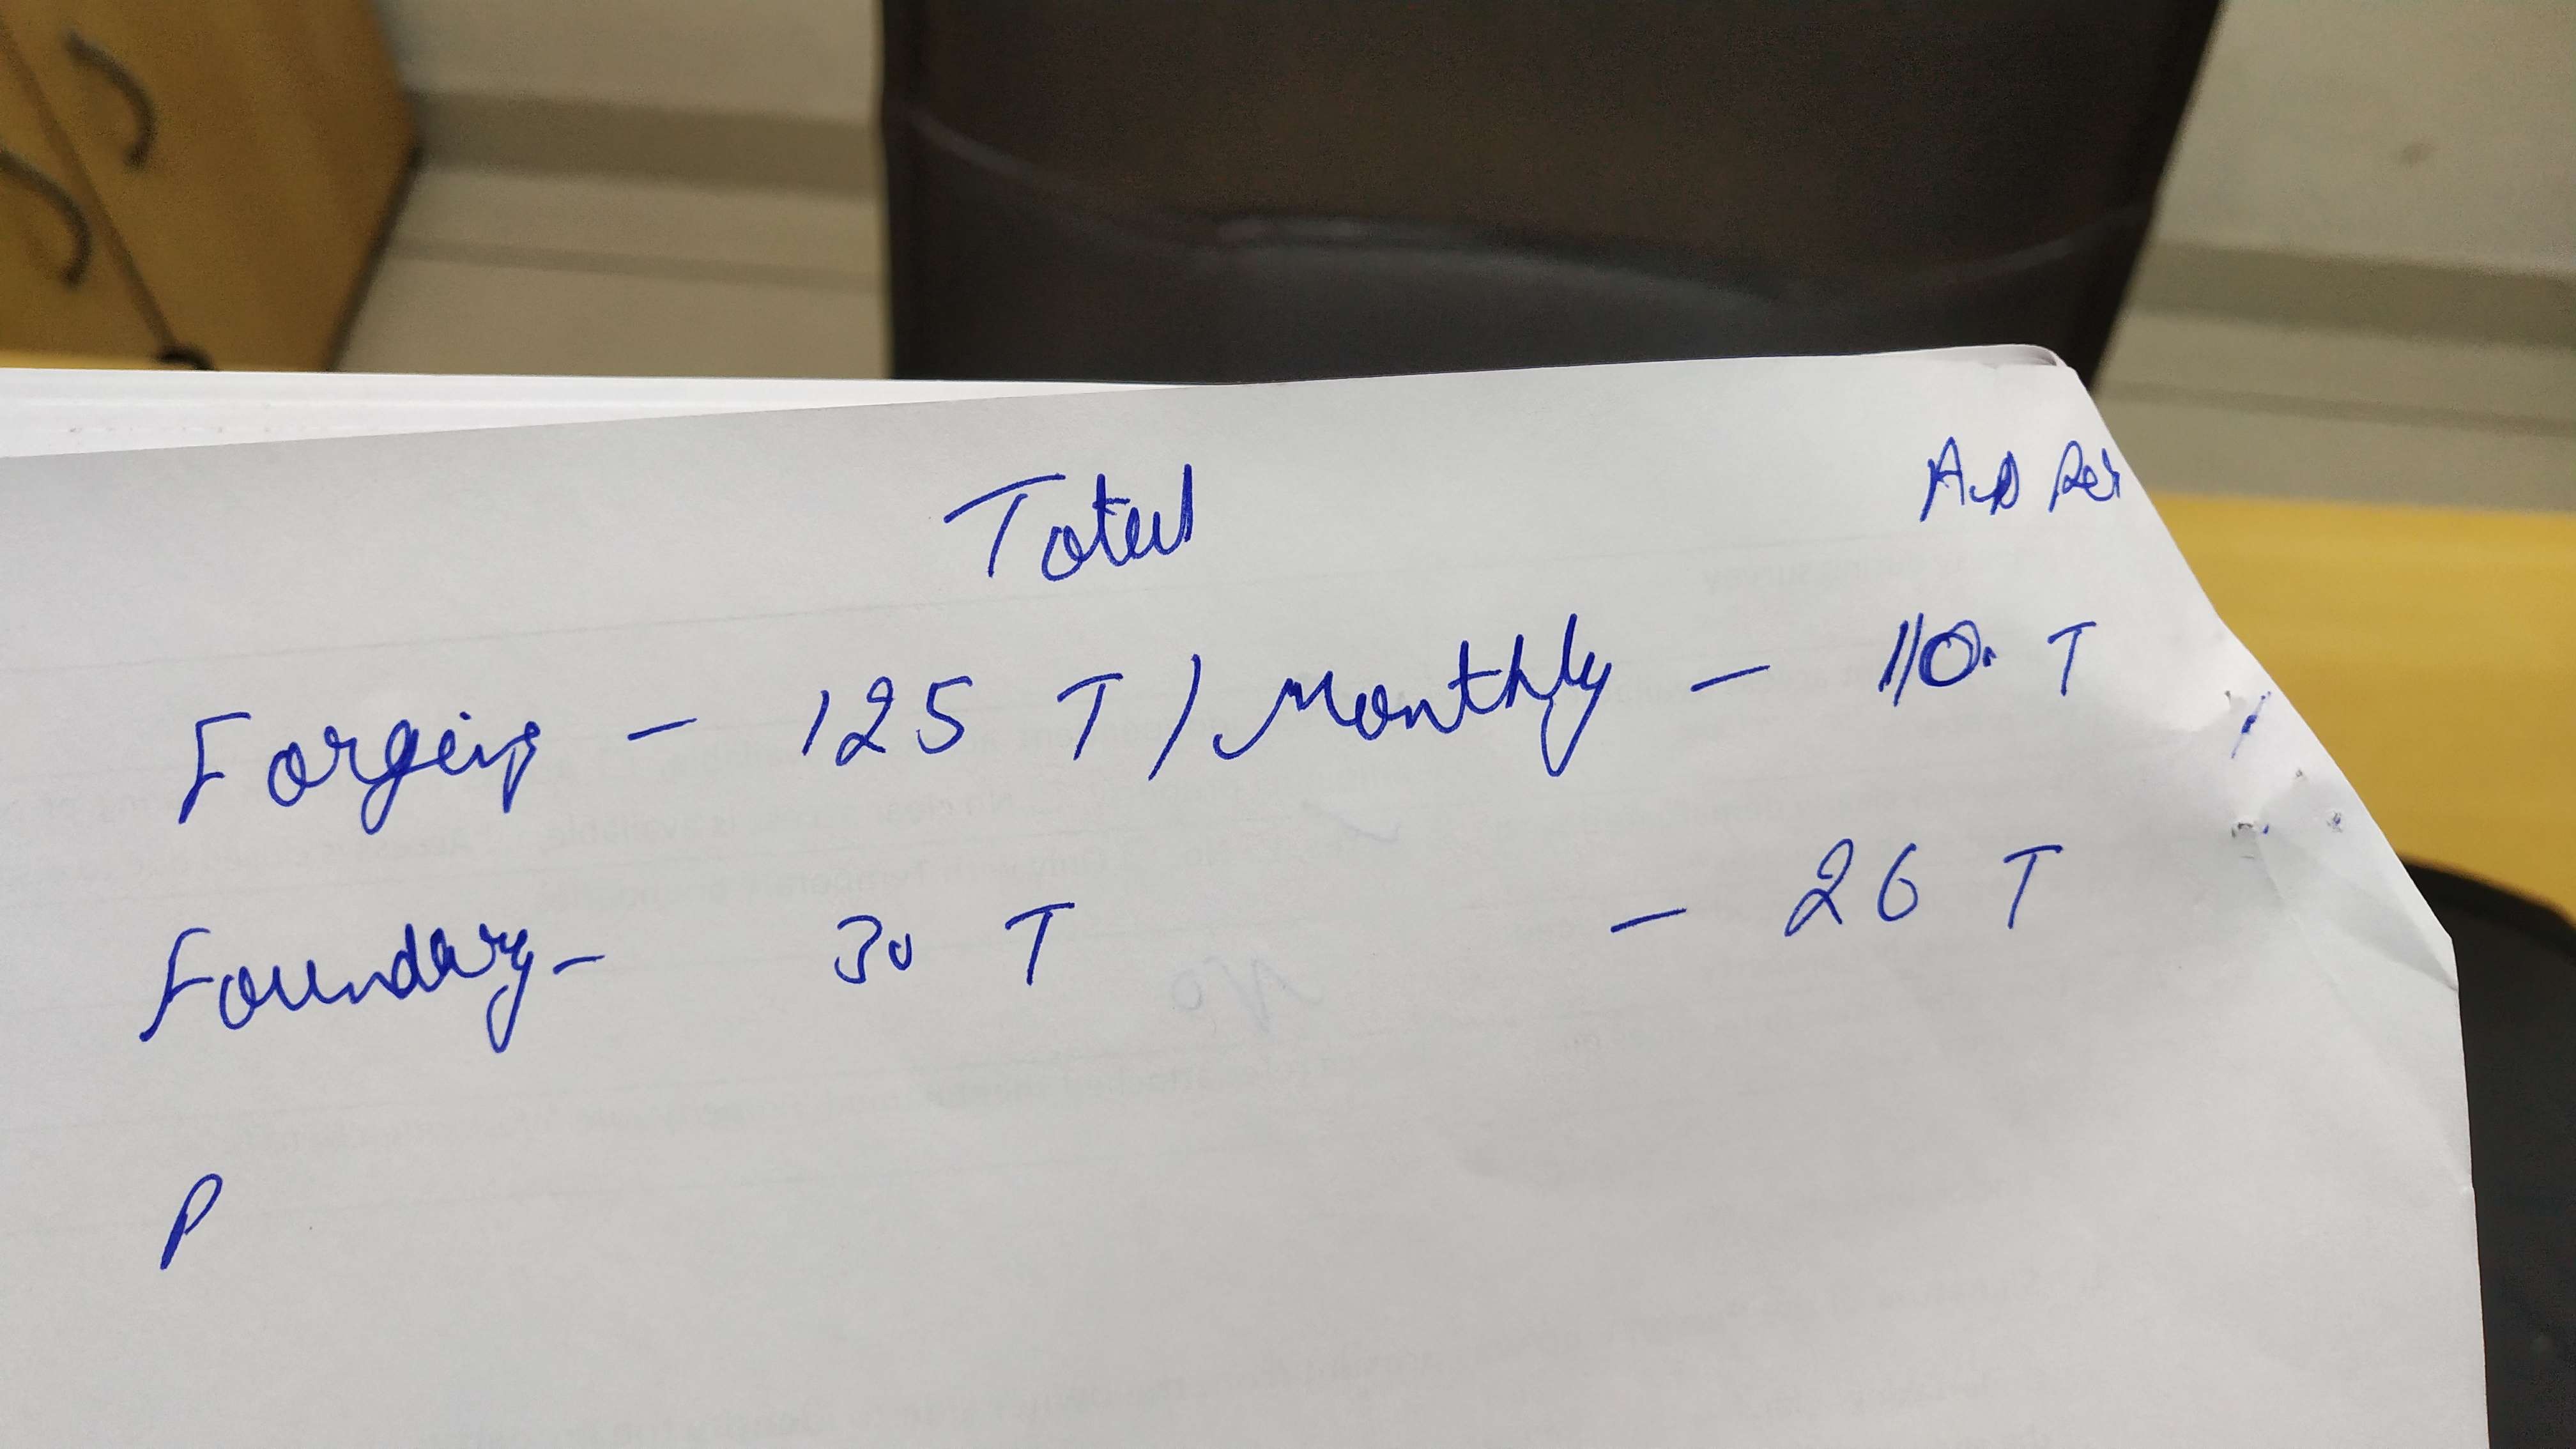 Total
Forging - 125 T / Monthly - 110. T
Foundary - 30 T - 26 T
P